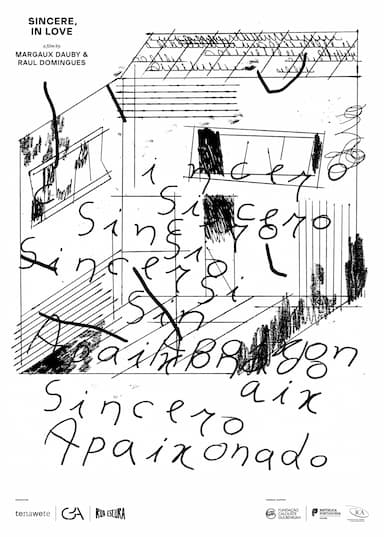 SINCERE,
IN LOVE
a film by
MARGAUX DAUBY &
RAUL DOMINGUES
incero
Si
Sincero
Si
Sincersi
Sin
aix
Sincero
Apaixonado
tenawete
RUA ESCURA
FUNDAÇÃO
CALOUSTE
GULBENKIAN
REPÚBLICA
PORTUGUESA